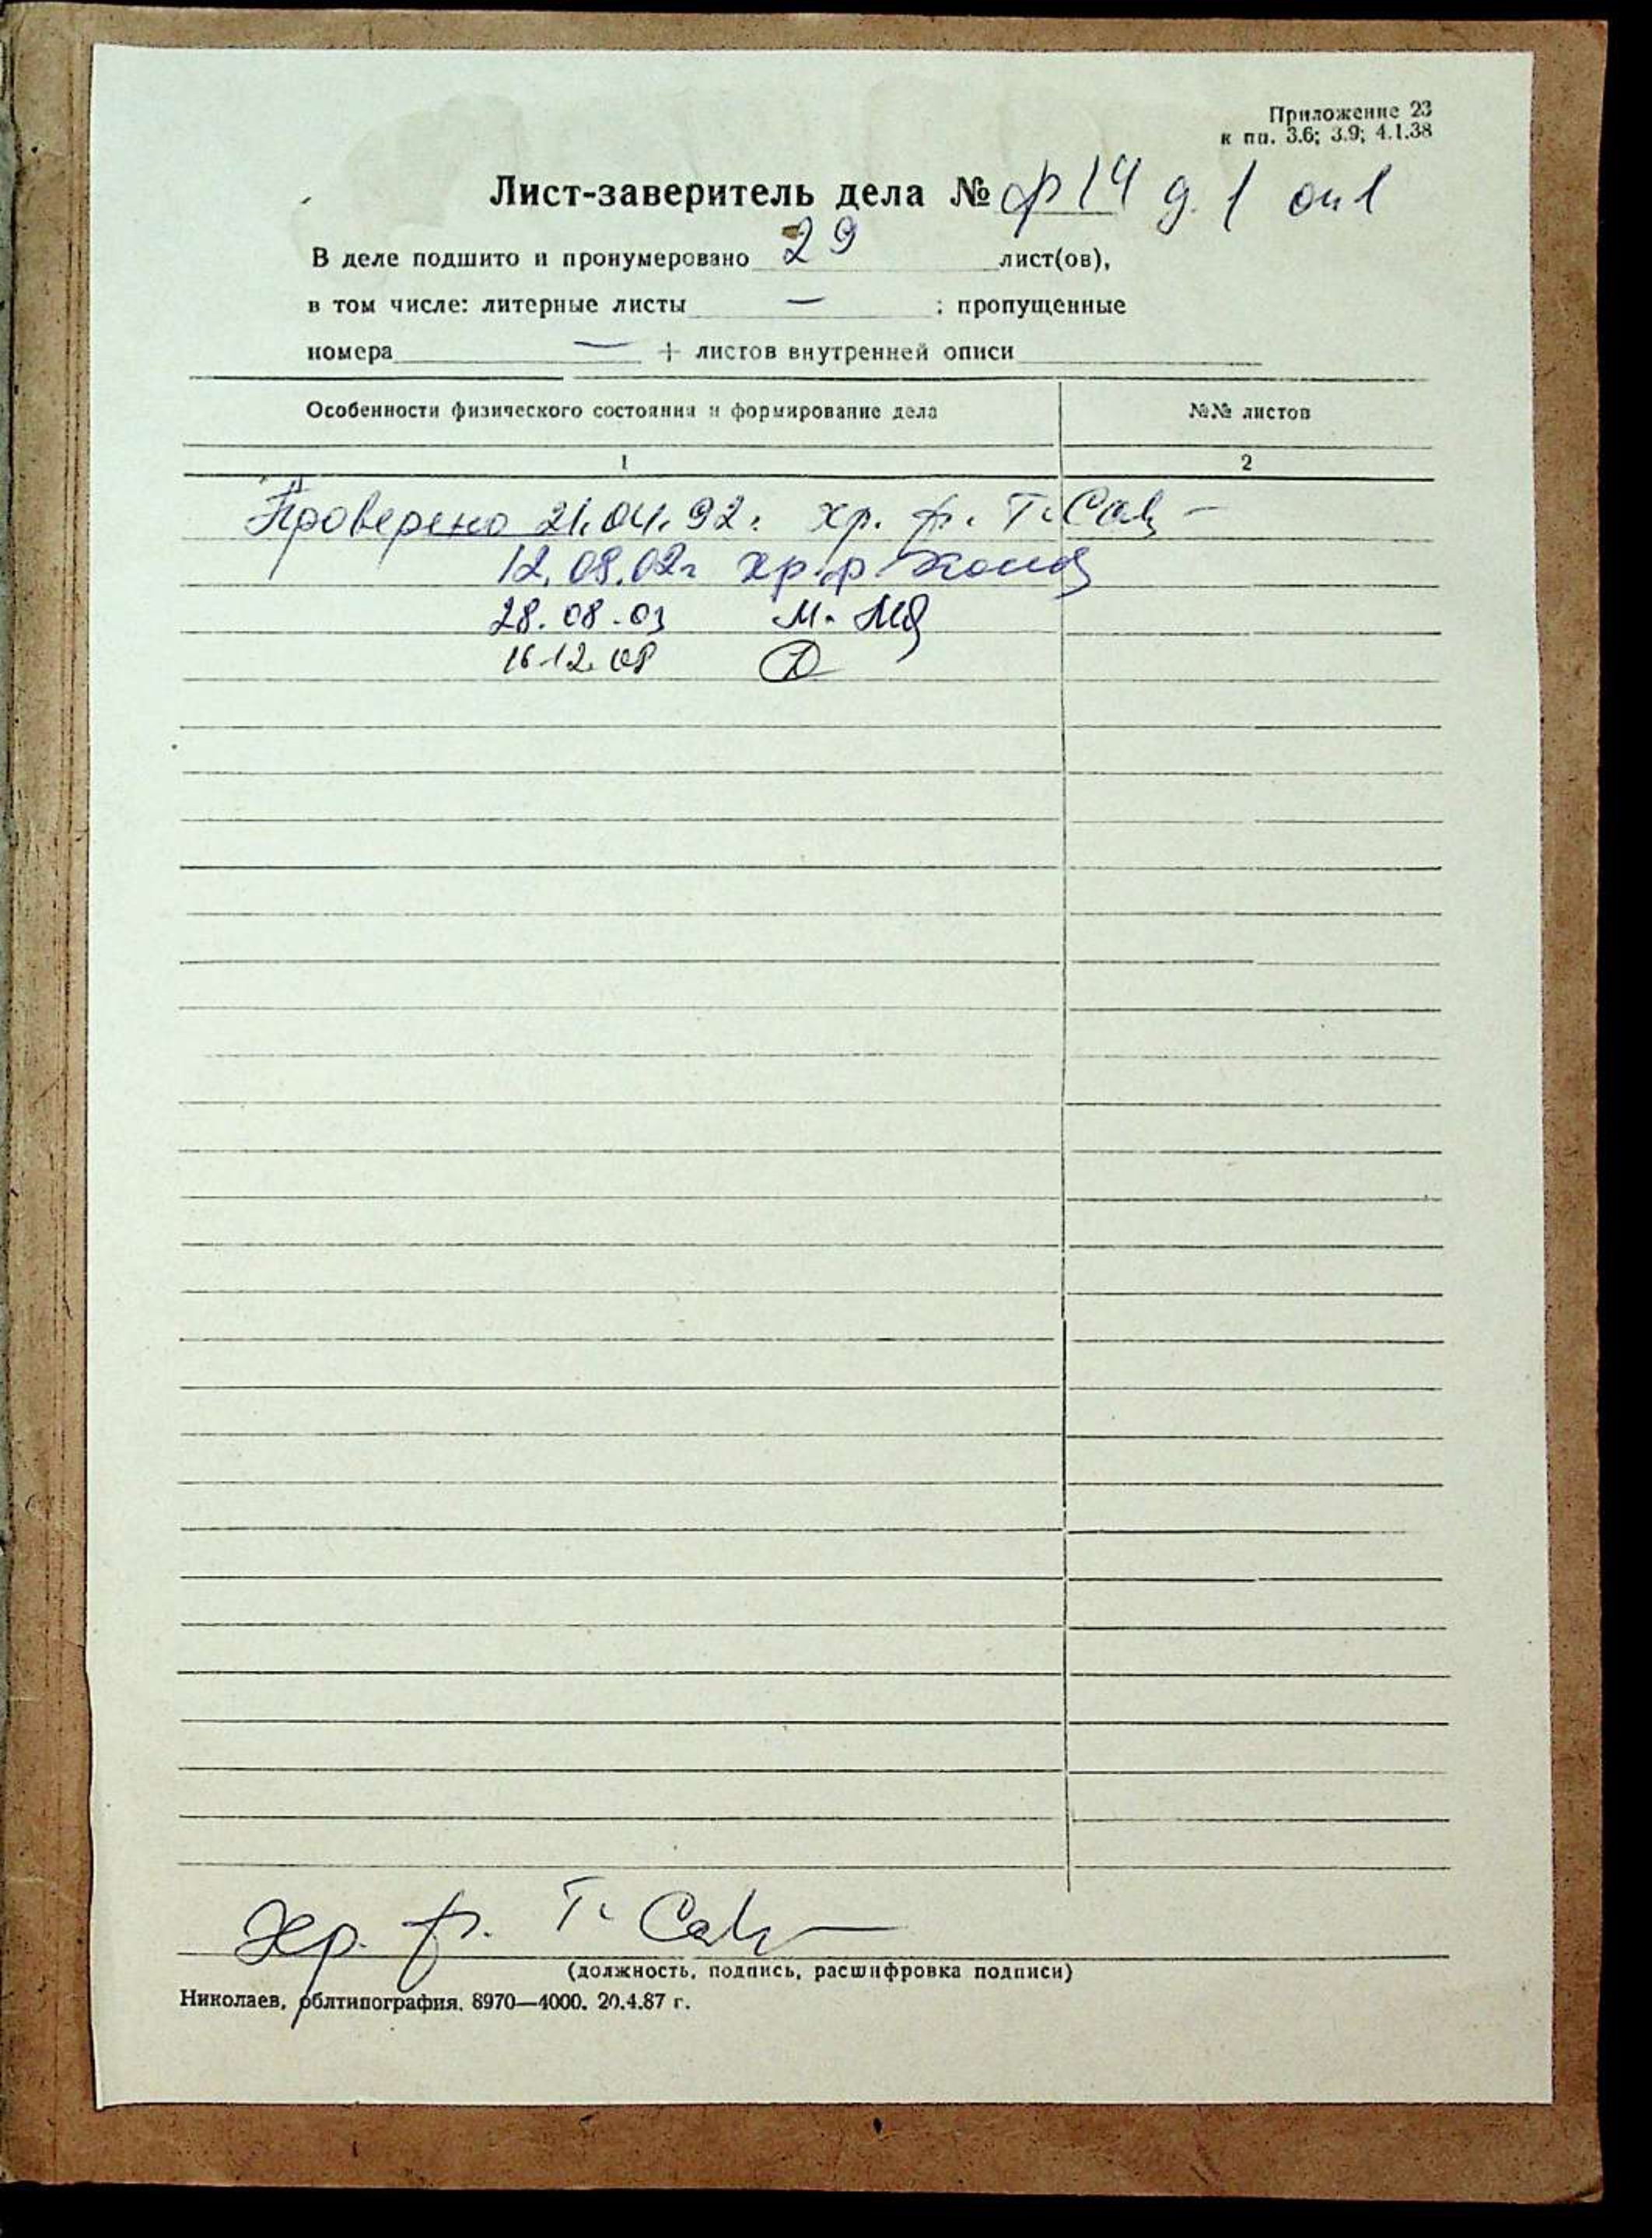 Приложение 23
к пп. 3.6; 3.9; 4.1.38
Лист-заверитель дела № ф 14 д. 1 оп 1
В деле подшито и пронумеровано 29 лист(ов),
в том числе: литерные листы — ; пропущенные
номера — + листов внутренней описи
Особенности физического состояния и формирование дела №№ листов
1 2
Проверено 21.04.92. хр. ф. Т. Сав
12.08.02г хр. ф.
28.08.03 М.
16.12.08
Хр. ф. Т. Сав
(должность, подпись, расшифровка подписи)
Николаев, облтипография. 8970—4000. 20.4.87 г.